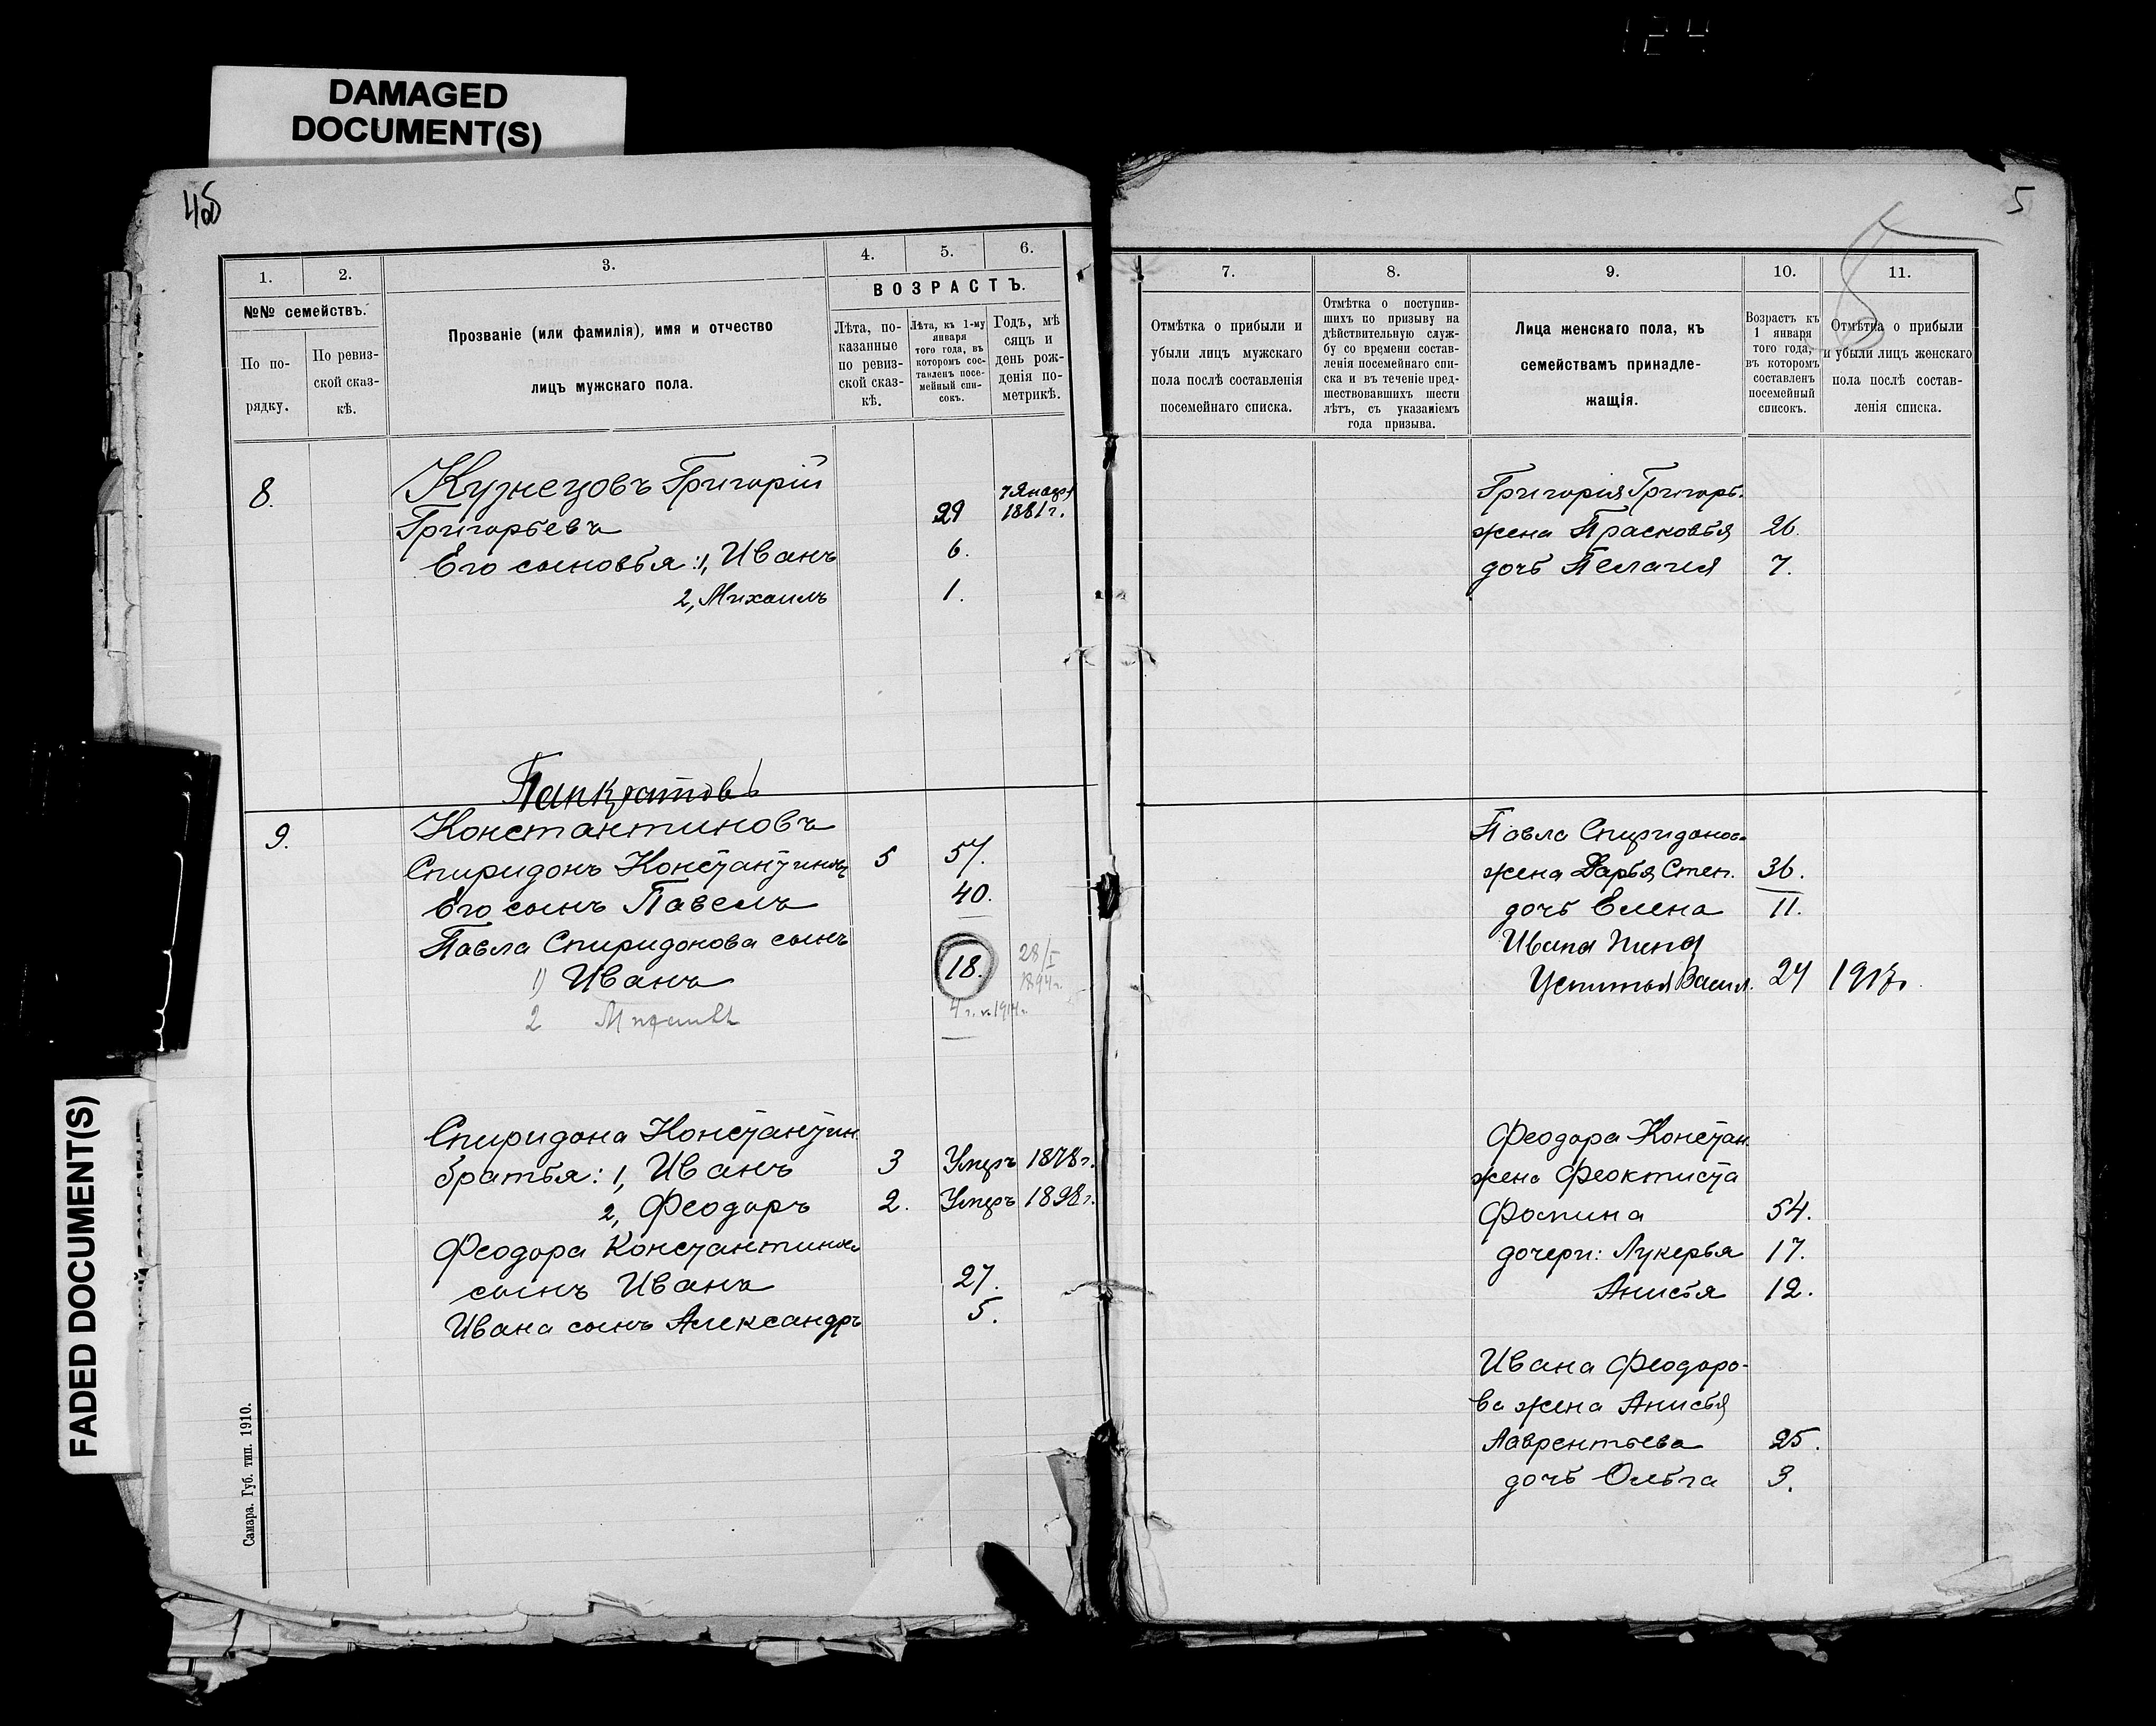 124
DAMAGED
DOCUMENT(S)
4об
1.
2.
3.
4.
5.
6.
№№ семействъ.
По по-
рядку.
По ревиз-
ской сказ-
кѣ.
Прозваніе (или фамилія), имя и отчество
лицъ мужскаго пола.
ВОЗРАСТЪ.
Лѣта, по-
казанные
по ревиз-
ской сказ-
кѣ.
Лѣта, къ 1-му
января
того года, въ
которомъ сос-
тавленъ посе-
мейный спи-
сокъ.
Годъ, мѣ
сяцъ и
день рож-
денія по-
метрикѣ.
8.
Кузнецовъ Григорій
Григорьевъ
29
7 Январ
1881 г.
Его сыновья: 1, Иванъ
6.
2, Михаилъ
1.
Панкратовъ
9.
Константиновъ
Спиридонъ Константиновъ
5
57.
Его сынъ Павелъ
40.
Павла Спиридонова сынъ
1) Иванъ
18.
28/I
1894 г.
2
4 г. в 1914 г.
Спиридона Константин
братья: 1, Иванъ
3
Умеръ 1878 г.
2, Феодоръ
2.
Умеръ 1898 г.
Феодора Константинова
сынъ Иванъ
27.
Ивана сынъ Александръ
5.
Самара. Губ. тип. 1910.
FADED DOCUMENT(S)
5
7.
8.
9.
10.
11.
Отмѣтка о прибыли и
убыли лицъ мужскаго
пола послѣ составленія
посемейнаго списка.
Отмѣтка о поступив-
шихъ по призыву на
дѣйствительную служ-
бу со времени состав-
ленія посемейнаго спи-
ска и въ теченіе пред-
шествовавшихъ шести
лѣтъ, съ указаніемъ
года призыва.
Лица женскаго пола, къ
семействамъ принадле-
жащія.
Возрастъ къ
1 января
того года,
въ которомъ
составленъ
посемейный
списокъ.
Отмѣтка о прибыли
и убыли лицъ женскаго
пола послѣ состав-
ленія списка.
Григорія Григорь.
жена Прасковья
26.
дочь Пелагея
7.
Павла Спиридонов.
жена Дарья Степ.
36.
дочь Елена
11.
Ивана
Васил.
24
Феодора Констан.
жена Феоктиста
Фомина
54.
дочери: Лукерья
17.
Анисья
12.
Ивана Феодоро-
ва жена Анисья
Лаврентьева
25.
дочь Ольга
3.